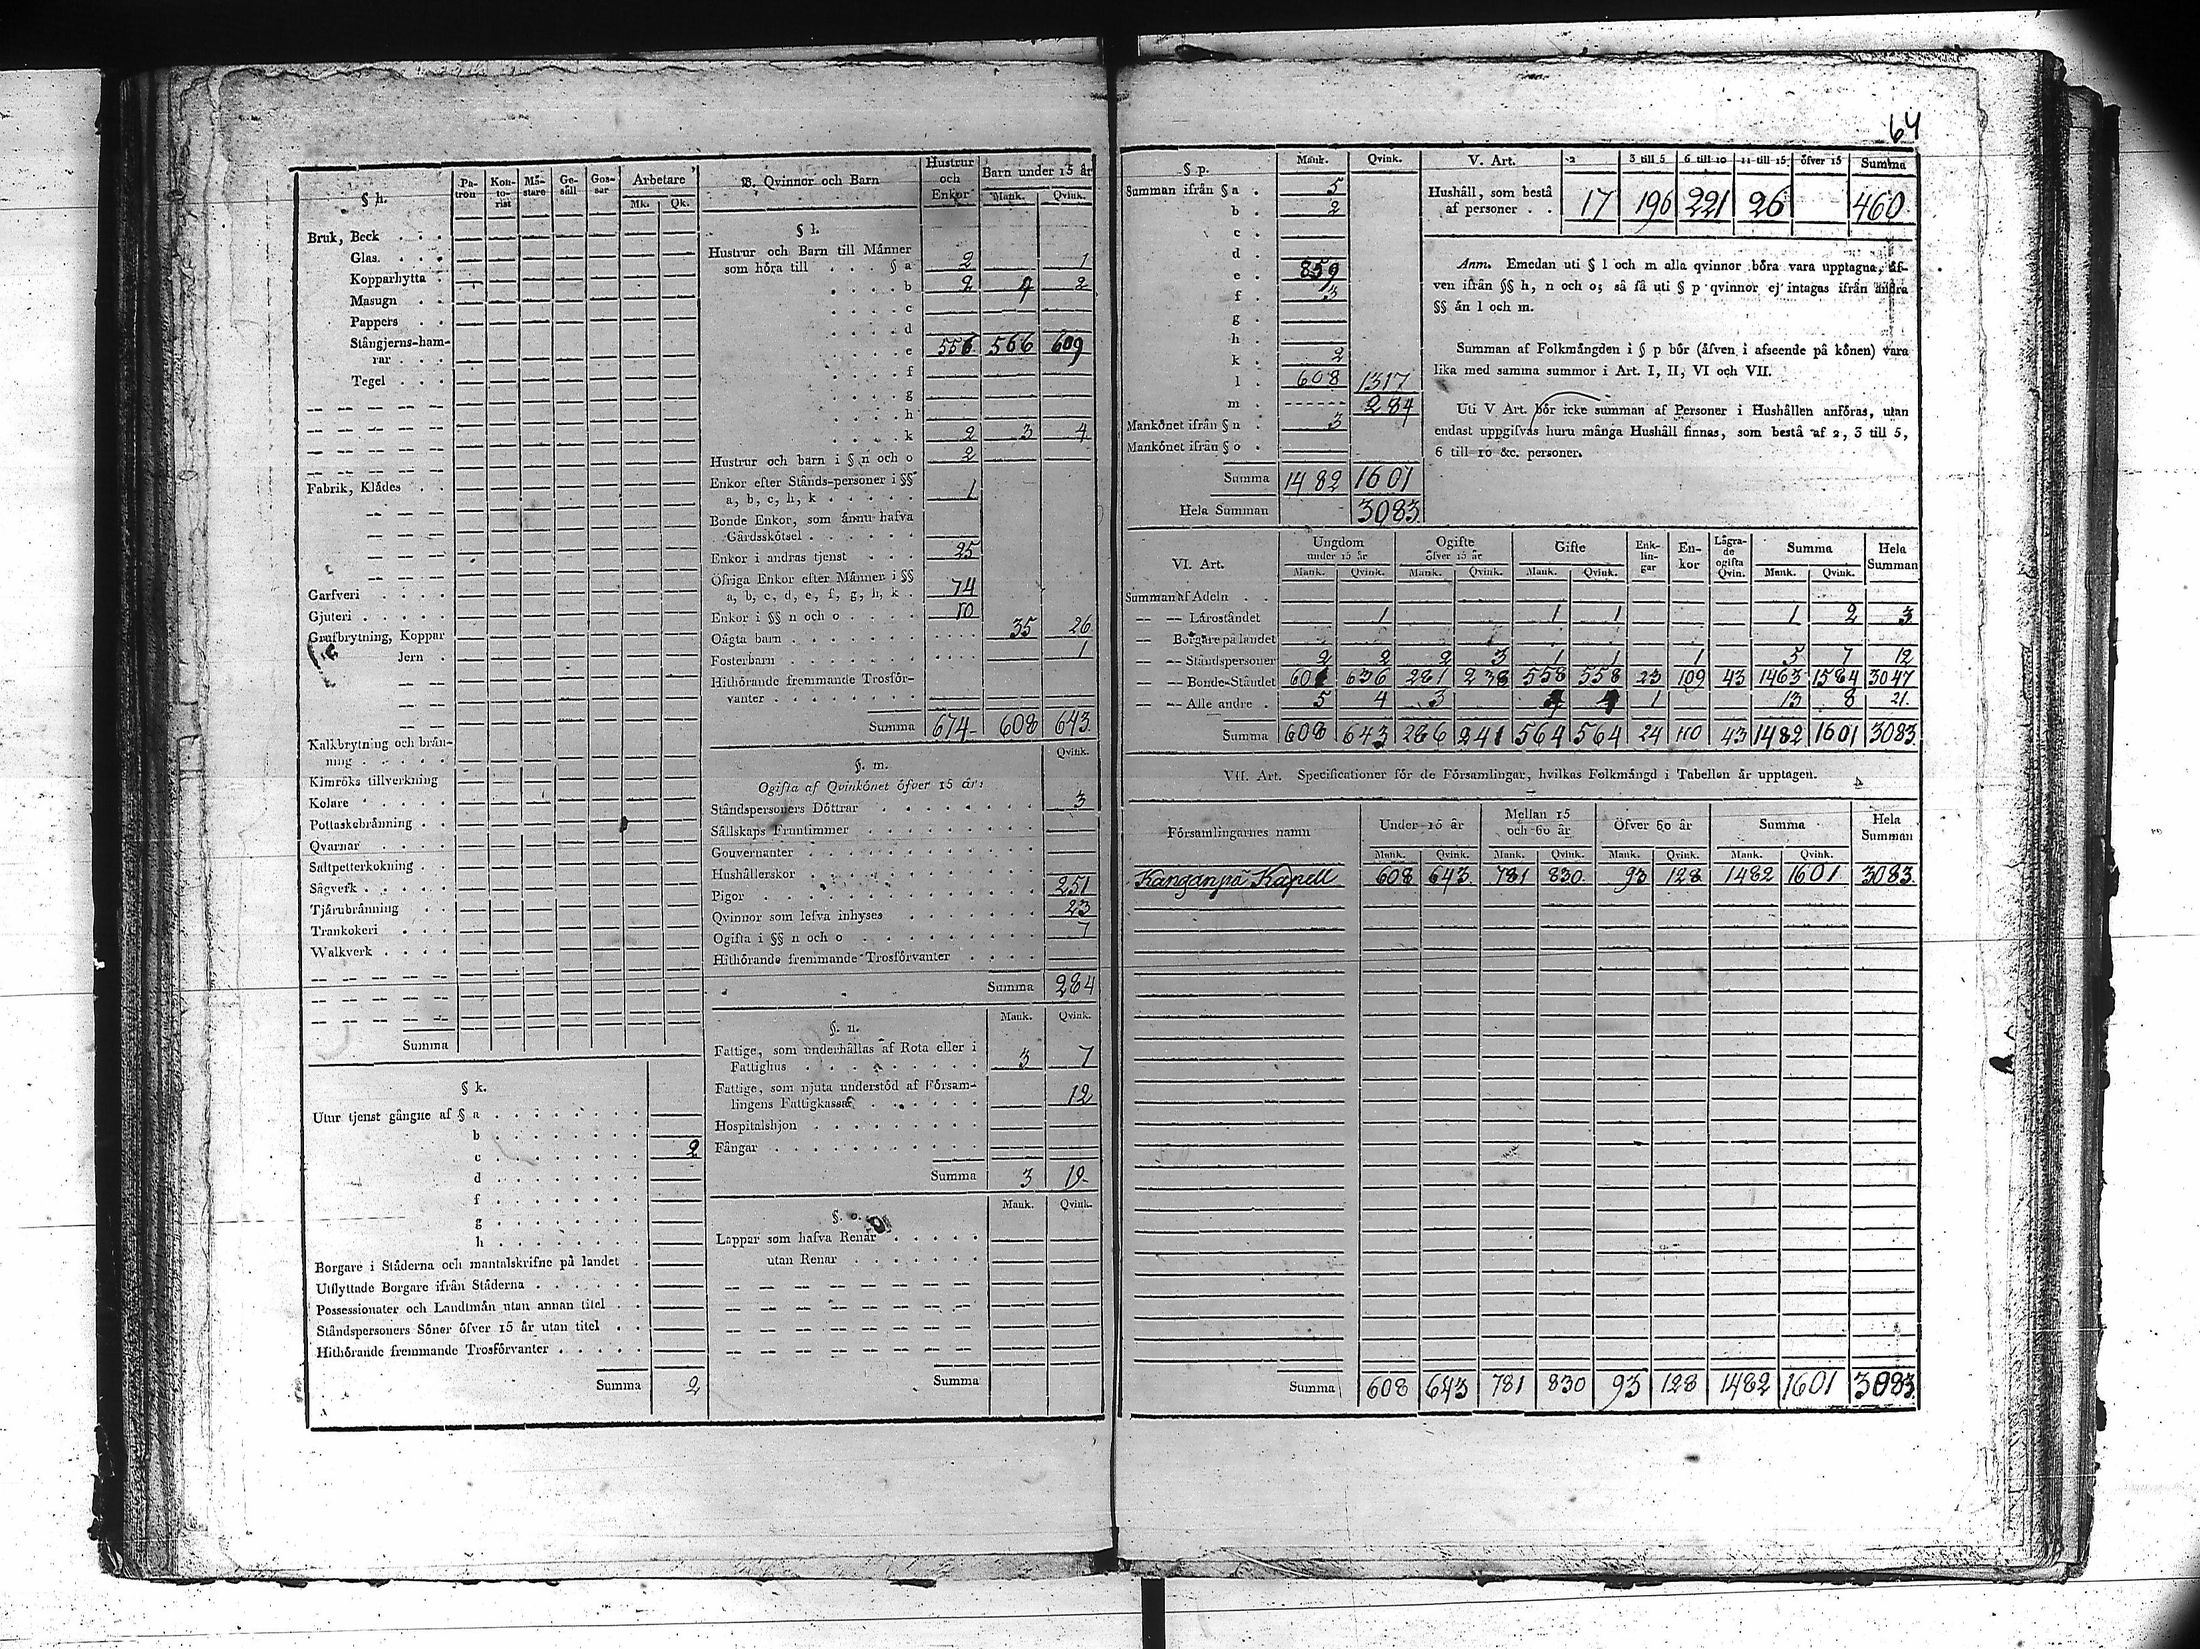 64
§ h.
Pa-
tron
Kon-
to-
rist
Mä-
stare
Ge-
säll
Gos-
sar
Arbetare
Mk. Qk.
Bruk, Beck
Glas.
Kopparhytta
Masugn
Pappers
Stångjerns-ham-
rar
Tegel
Fabrik, Klädes
Garfveri
Gjuteri
Grufbrytning, Koppar
Jern
Kalkbrytning och brän-
ning
Kimröks tillverkning
Kolare
Pottaskebränning
Qvarnar
Saltpetterkokning
Sågverk
Tjärubränning
Trankokeri
Walkverk
Summa
§ k.
Utur tjenst gångne af § a
b
c 2
d
f
g
h
Borgare i Städerna och mantalskrifne på landet
Utflyttade Borgare ifrån Städerna
Possessionater och Landtmän utan annan titel
Ståndspersoners Söner öfver 15 år utan titel
Hithörande fremmande Trosförvanter
Summa 2
B. Qvinnor och Barn
Hustrur
och
Enkor
Barn under 15 år
Mank. Qvink.
§ l.
Hustrur och Barn till Männer
som höra till § a 2 1
b 2 2
c
d
e 556 566 609
f
g
h
k 2 3 4
Hustrur och barn i § n och o 2
Enkor efter Stånds-personer i §§
a, b, c, h, k 1
Bonde Enkor, som ännu hafva
Gårdsskötsel
Enkor i andras tjenst 25
Öfriga Enkor efter Männer i §§
a, b, c, d, e, f, g, h, k 74
Enkor i §§ n och o 10
Oägta barn 35 26
Fosterbarn 1
Hithörande fremmande Trosför-
vanter
Summa 674 608 643
§. m.
Qvink.
Ogifta af Qvinkönet öfver 15 år:
Ståndspersoners Döttrar 3
Sällskaps Fruntimmer
Gouvernanter
Hushållerskor
Pigor 251
Qvinnor som lefva inhyses 23
Ogifta i §§ n och o 7
Hithörande fremmande Trosförvanter
Summa 284
§. n.
Mank. Qvink.
Fattige, som underhållas af Rota eller i
Fattighus 3 7
Fattige, som njuta understöd af Församlingens Fattigkassa 12
Hospitalshjon
Fångar
Summa 3 19
§. o.
Mank. Qvink.
Lappar som hafva Renar
utan Renar
Summa
§ p.
Mank. Qvink.
Summan ifrån § a 5
b 2
c
d
e 859
f 3
g
h
k 2
l 608 1317
m 284
Mankönet ifrån § n 3
Mankönet ifrån § o
Summa 1482 1601
Hela Summan 3083
V. Art. 2 3 till 5 6 till 10 11 till 15 öfver 15 Summa
Hushåll, som bestå
af personer 17 196 221 26 460
Anm. Emedan uti § l och m alla qvinnor böra vara upptagna, äf-
ven ifrån §§ h, n och o; så få uti § p qvinnor ej intagas ifrån andra
§§ än l och m.
Summan af Folkmängden i § p bör (äfven i afseende på könen) vara
lika med samma summor i Art. I, II, VI och VII.
Uti V Art. bör icke summan af Personer i Hushållen anföras, utan
endast uppgifvas huru många Hushåll finnas, som bestå af 2, 3 till 5,
6 till 10 &c. personer.
VI. Art.
Ungdom
under 15 år
Ogifte
öfver 15 år
Gifte
Enk-
lin-
gar
En-
kor
Lägra-
de
ogifta
Qvin.
Summa
Hela
Summan
Mank. Qvink. Mank. Qvink. Mank. Qvink. Mank. Qvink.
Summan af Adeln
— — Läroståndet 1 1 1 1 2 3
— Borgare på landet
— — Ståndspersoner 2 2 2 3 1 1 1 5 7 12
— — Bonde-Ståndet 601 636 281 238 558 558 23 109 43 1463 1584 3047
— — Alle andre 5 4 3 4 4 1 13 8 21
Summa 608 643 286 241 564 564 24 110 43 1482 1601 3083
VII. Art. Specificationer för de Församlingar, hvilkas Folkmängd i Tabellen är upptagen.
Församlingarnes namn
Under 15 år
Mellan 15
och 60 år
Öfver 60 år
Summa
Hela
Summan
Mank. Qvink. Mank. Qvink. Mank. Qvink. Mank. Qvink.
Kanganpä Kapell 608 643 781 830 93 128 1482 1601 3083
Summa 608 643 781 830 93 128 1482 1601 3083